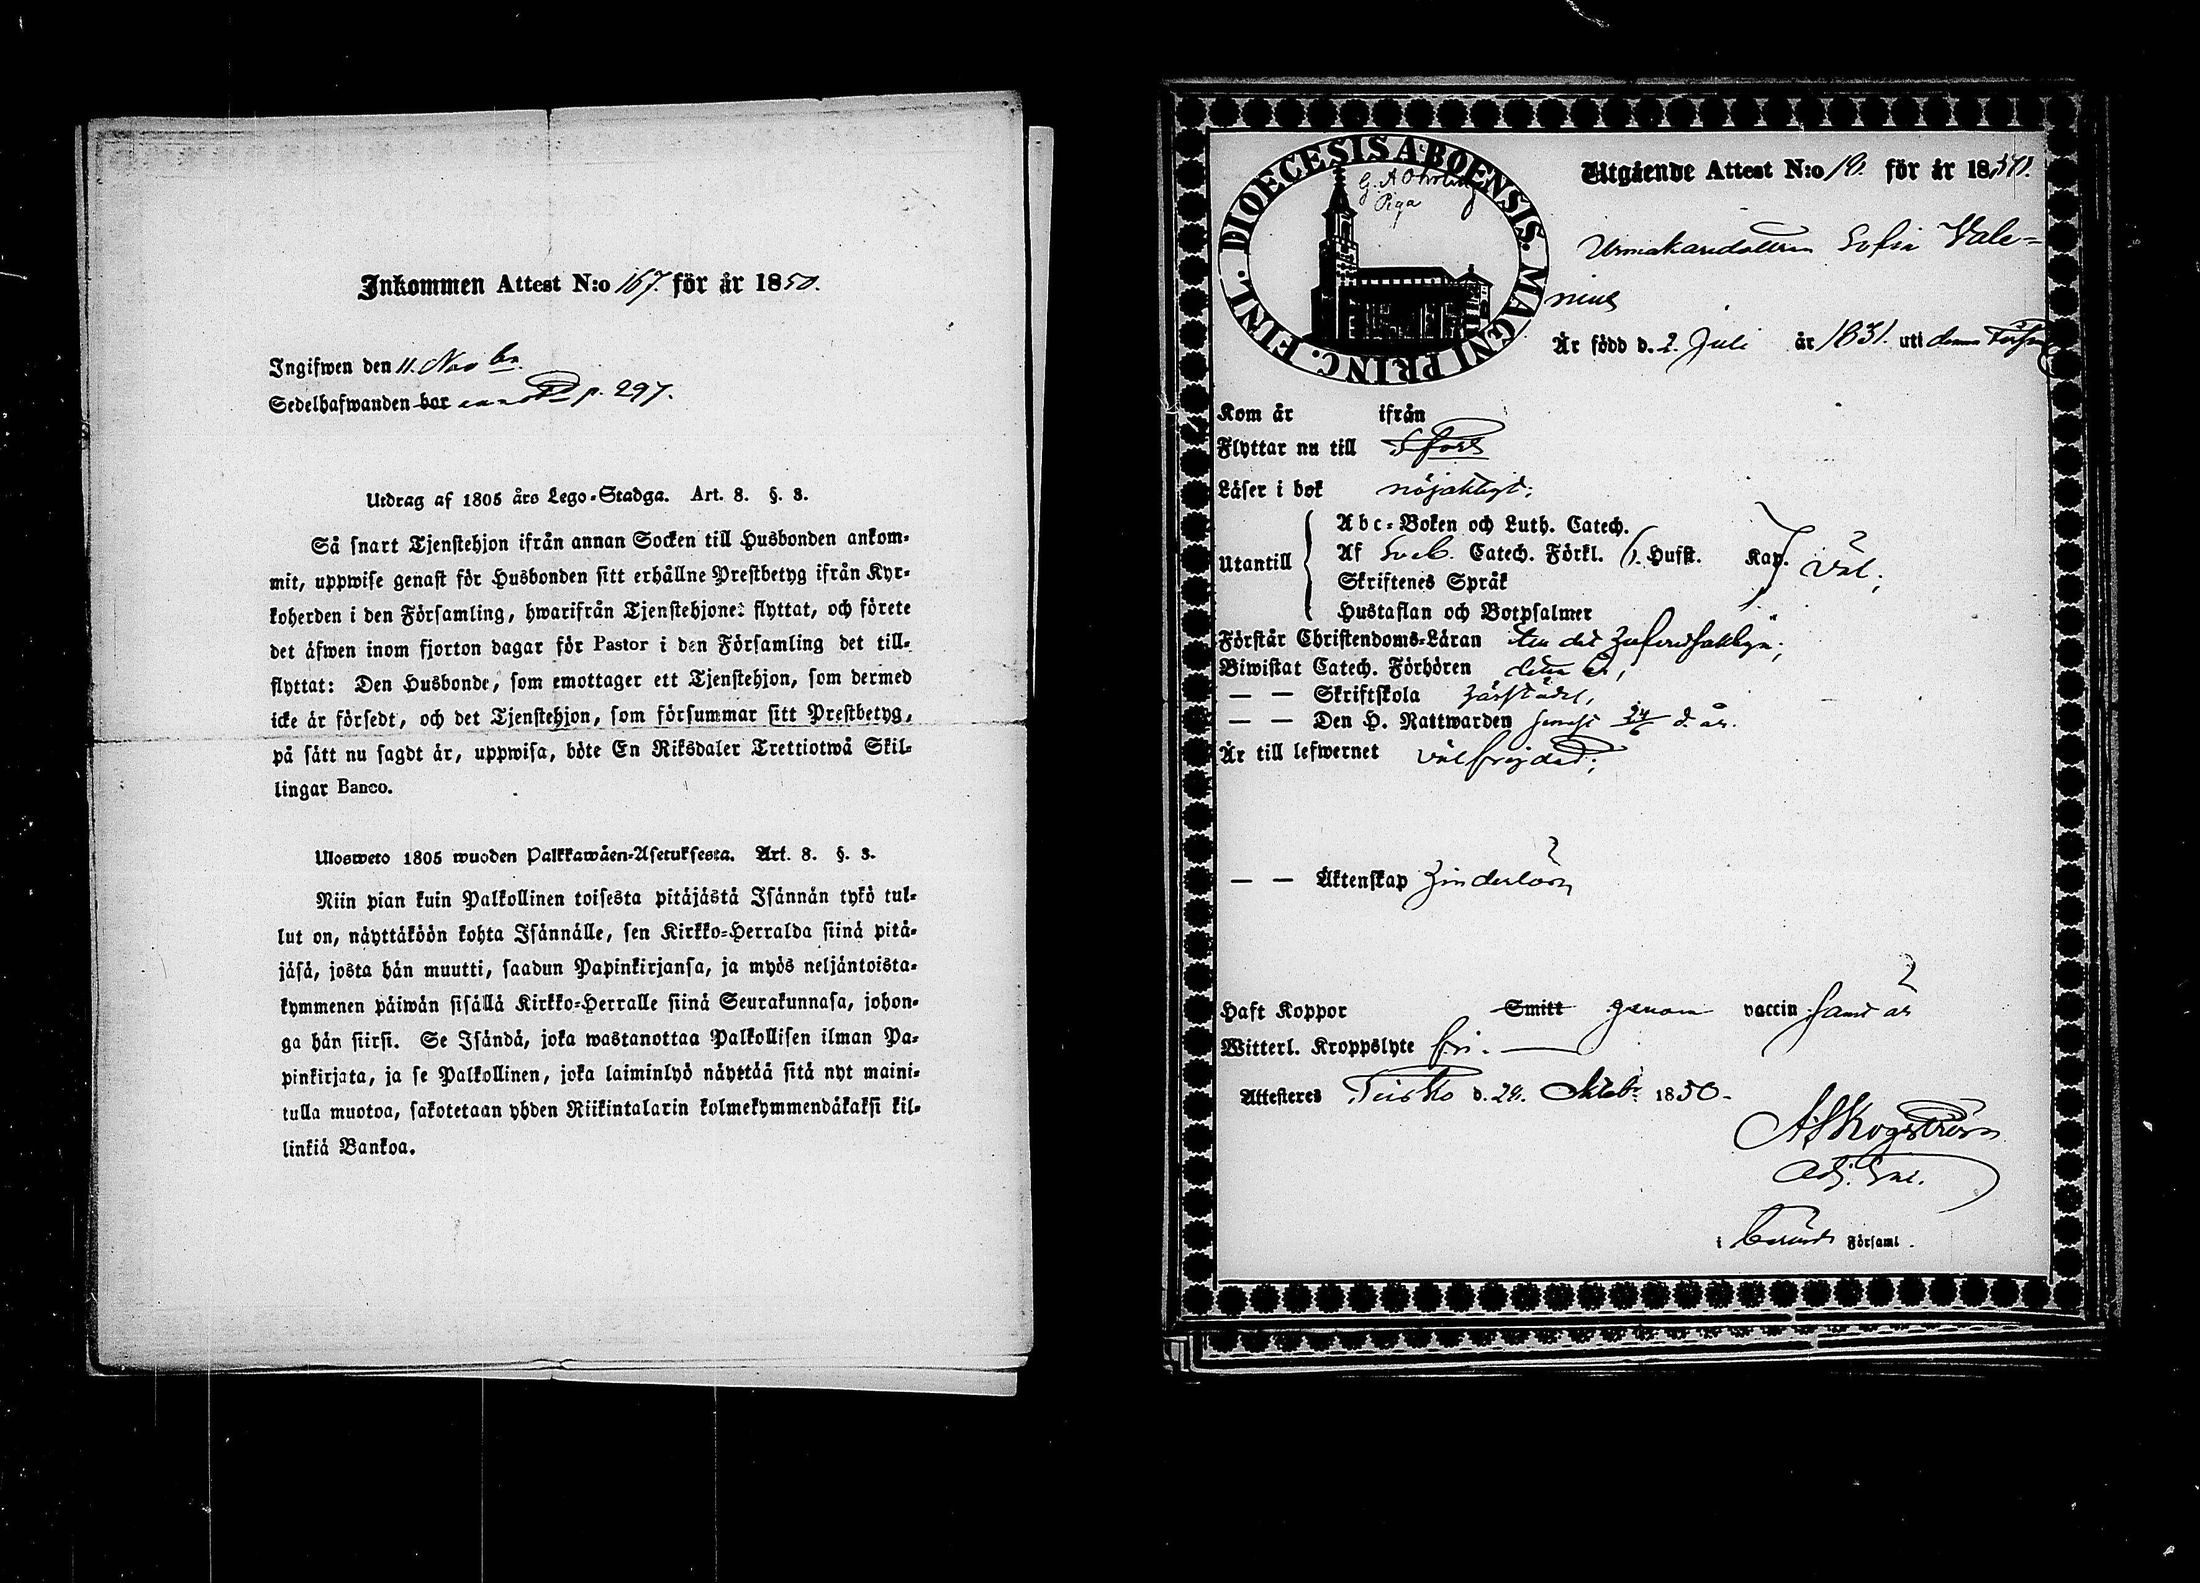 Inkommen Attest N:o 167. för år 1850.
Ingifwen den 11. Nov br.
Sedelhafwanden bor p. 297.
Utdrag af 1805 års Lego-Stadga. Art. 8. §. 3.
Så snart Tjenstehjon ifrån annan Socken till Husbonden ankom-
mit, uppwise genast för Husbonden sitt erhållne Prestbetyg ifrån Kyr-
koherden i den Församling, hwarifrån Tjenstehjonet flyttat, och förete
det äfwen inom fjorton dagar för Pastor i den Församling det till-
flyttat: Den Husbonde, som emottager ett Tjenstehjon, som dermed
icke är försedt, och det Tjenstehjon, som försummar sitt Prestbetyg,
på sätt nu sagdt är, uppwisa, böte En Riksdaler Trettiotwå Skil-
lingar Banco.
Ulosweto 1805 wuoden Palkkawäen-Asetuksesta. Art. 8. §. 3.
Niin pian kuin Palkollinen toisesta pitäjästä Isännän tykö tul-
lut on, näyttäköön kohta Isännälle, sen Kirkko-Herralda siinä pitä-
jäsä, josta hän muutti, saadun Papinkirjansa, ja myös neljäntoista-
kymmenen päiwän sisällä Kirkko-Herralle siinä Seurakunnasa, johon-
ga hän siirsi. Se Isändä, joka wastanottaa Palkollisen ilman Pa-
pinkirjata, ja se Palkollinen, joka laiminlyö näyttää sitä nyt maini-
tulla muotoa, sakotetaan yhden Riikintalarin kolmekymmendäkaksi kil-
linkiä Bankoa.
DIOECESIS ABOENSIS. MAGNI PRINC. FINL.
Piga
Utgående Attest N:o för år 18
Sofia Vale-
nius
Är född d. 2. Juli år 1831. uti denna Förs
Kom år ifrån
Flyttar nu till T fors
Läser i bok nöjaktigt;
Utantill
Abc-Boken och Luth. Catech.
Af Sveb. Catech. Förkl. Hufst. Kap. Väl;
Skriftenes Språk
Hustaflan och Botpsalmer
Förstår Christendoms-Läran
Biwistat Catech. Förhören
— — Skriftskola
— — Den H. Nattwarden senast 24/6 d. år.
Är till lefwernet välfrejdad;
— — Äktenskap hinderlös,
Haft Koppor Smitt genom vaccin samt är
Witterl. Kroppslyte fri.
Attesteres Teisko d. 24. Octob: 1850.
A. Skogström
Adj.
i Församl.